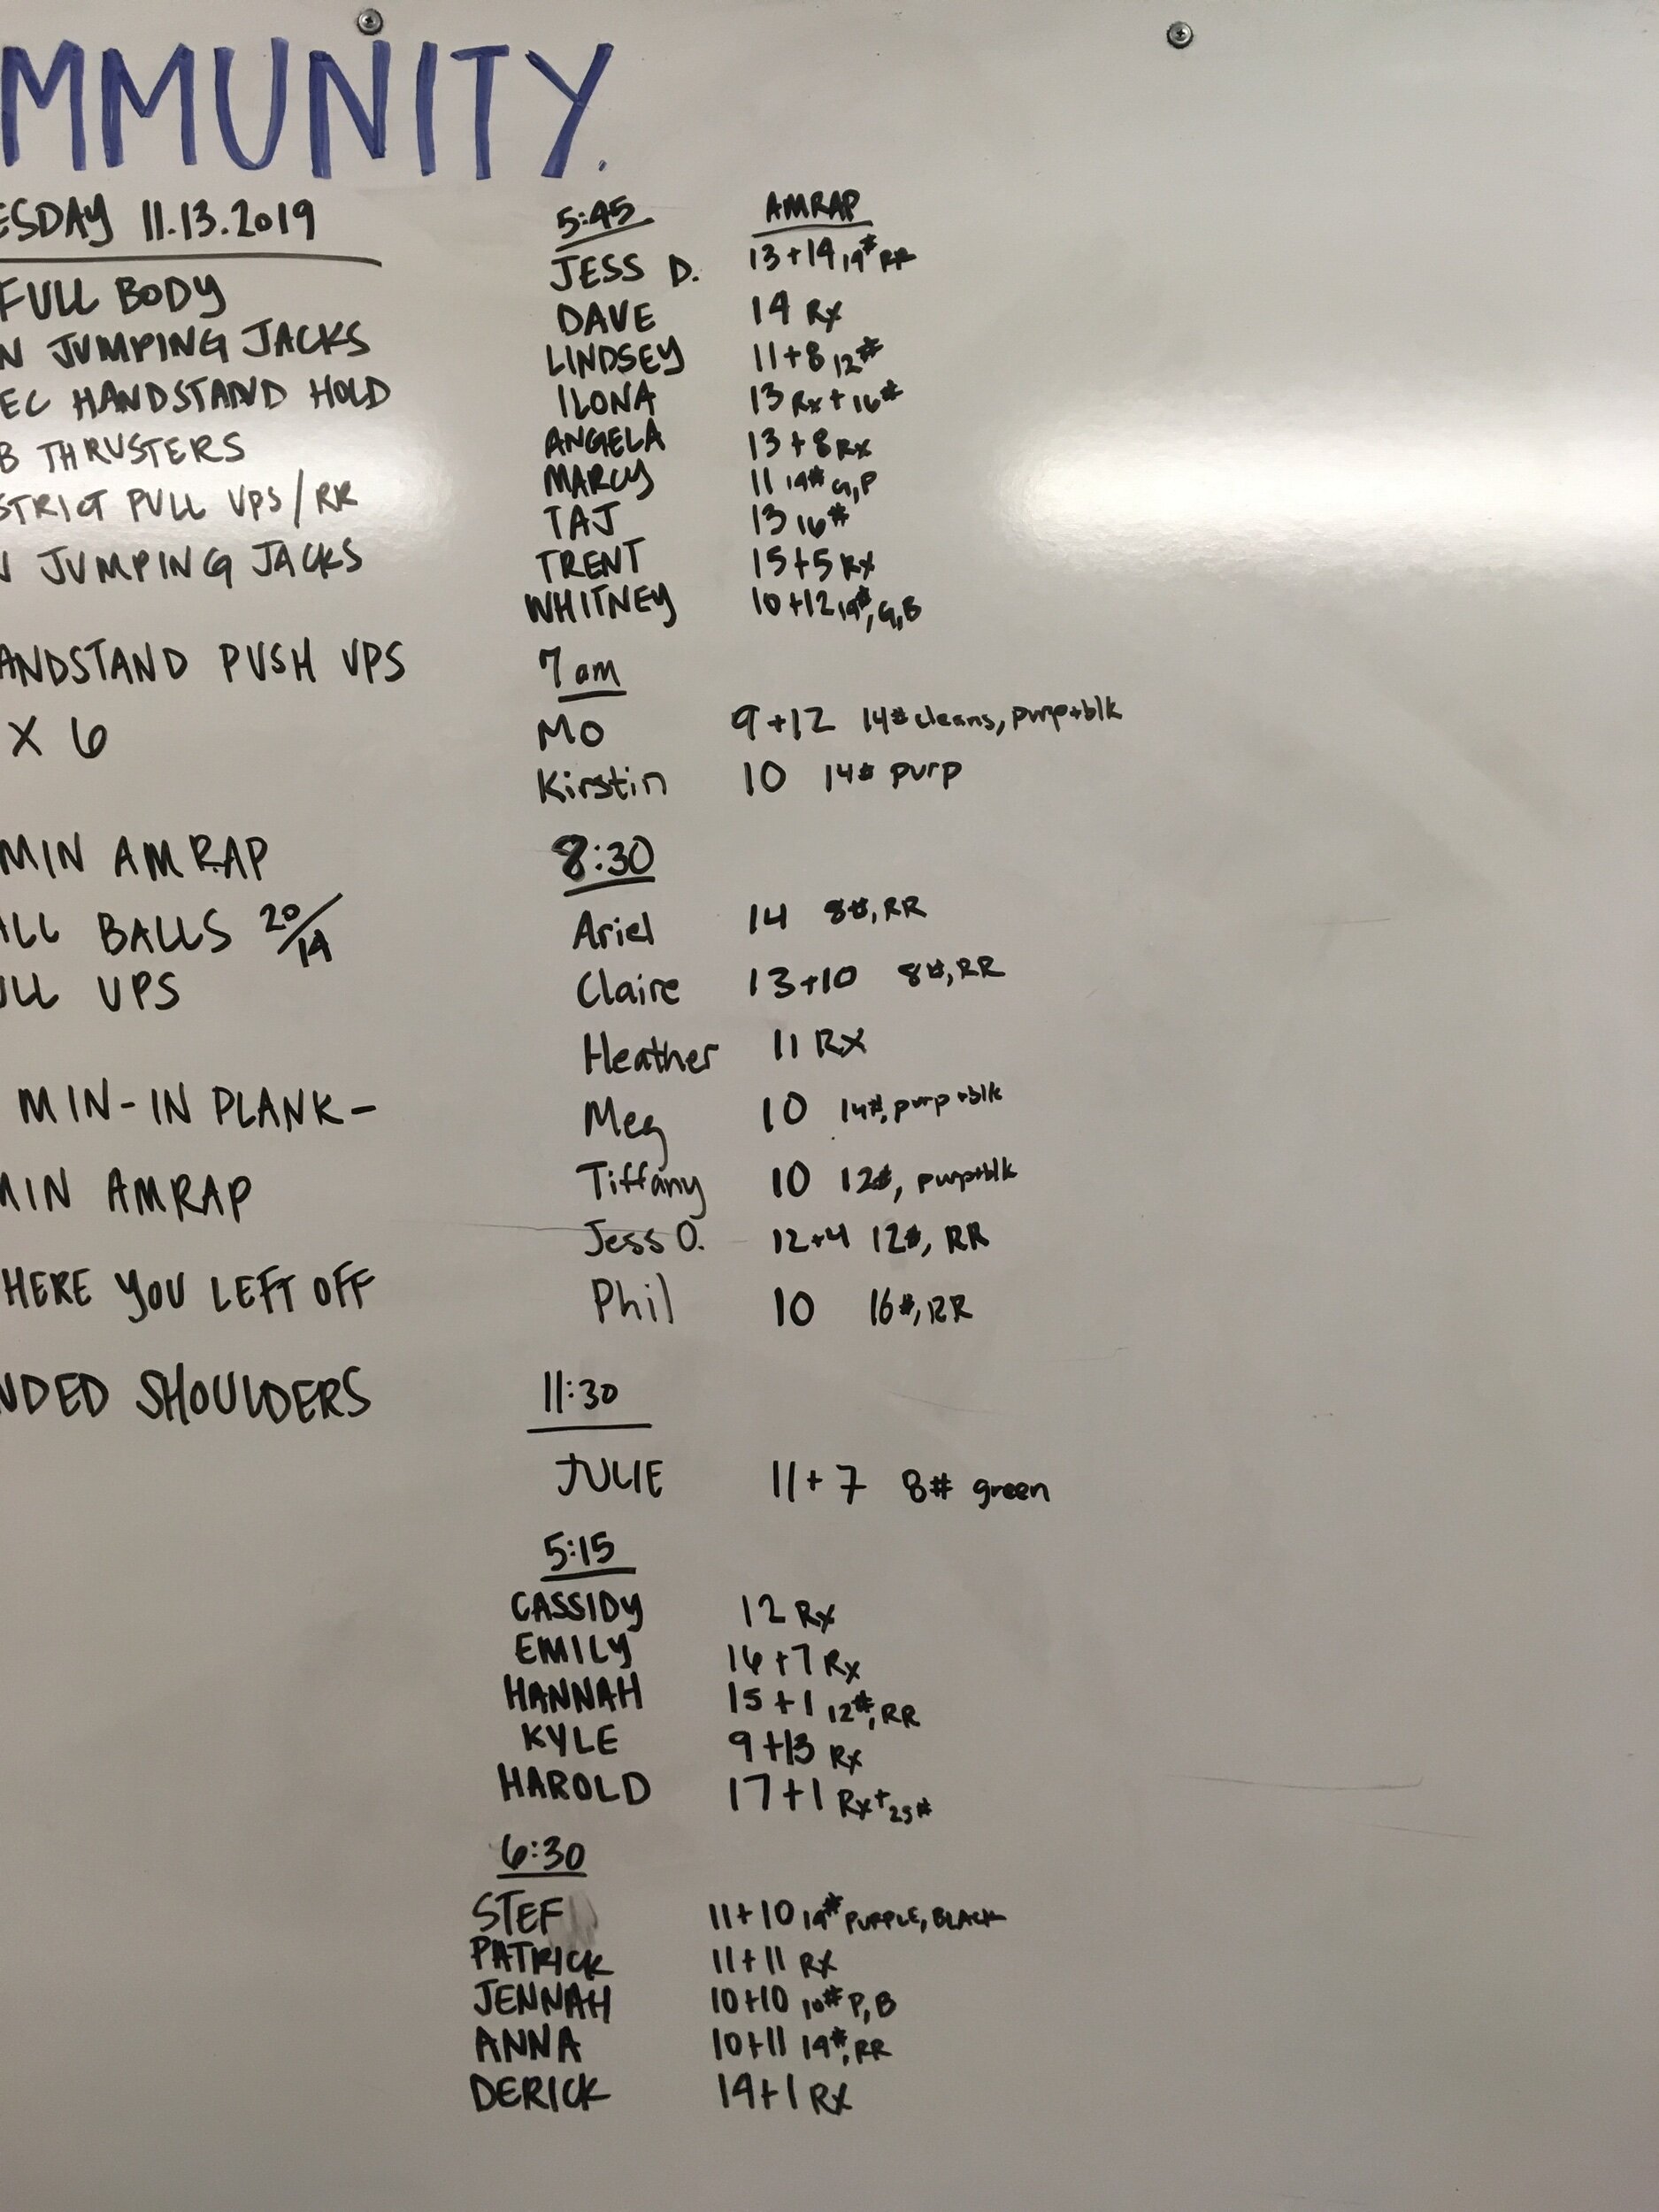 MMUNITY.
ESDAY 11.13.2019
FULL BODY
N JUMPING JACKS
EC HANDSTAND HOLD
B THRUSTERS
STRICT PULL UPS/RR
N JUMPING JACKS
ANDSTAND PUSH UPS
X 6
MIN AMRAP
ALL BALLS 20/14
ULL UPS
MIN-IN PLANK-
MIN AMRAP
HERE YOU LEFT OFF
NDED SHOULDERS
5:45 AMRAP
JESS D. 13+14 14# RR
DAVE 14 Rx
LINDSEY 11+8 12#
ILONA 13 Rx + 16#
ANGELA 13+8 Rx
MARCY 11 14# G,P
TAJ 13 16#
TRENT 15+5 Rx
WHITNEY 10+12 14#, G,B
7am
MO 9+12 14# cleans, purp+blk
Kirstin 10 14# purp
8:30
Ariel 14 8#, RR
Claire 13+10 8#, RR
Heather 11 RX
Meg 10 14#, purp+blk
Tiffany 10 12#, purp+blk
Jess O. 12+4 12#, RR
Phil 10 16#, RR
11:30
JULIE 11+7 8# green
5:15
CASSIDY 12 Rx
EMILY 16+7 Rx
HANNAH 15+1 12#, RR
KYLE 9+13 Rx
HAROLD 17+1 Rx+ 25#
6:30
STEF 11+10 14# PURPLE, BLACK
PATRICK 11+11 RX
JENNAH 10+10 10# P, B
ANNA 10+11 14#, RR
DERICK 14+1 RX